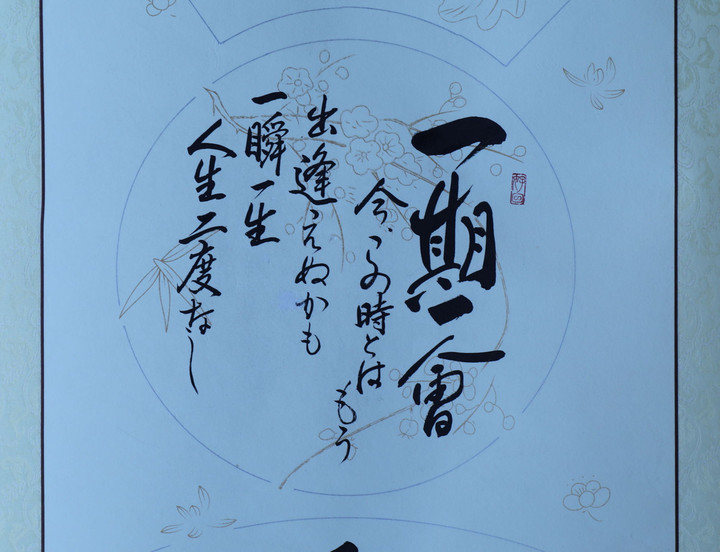 一期一會
今、この時とは
もう
出逢えぬかも
一瞬一生
人生二度なし